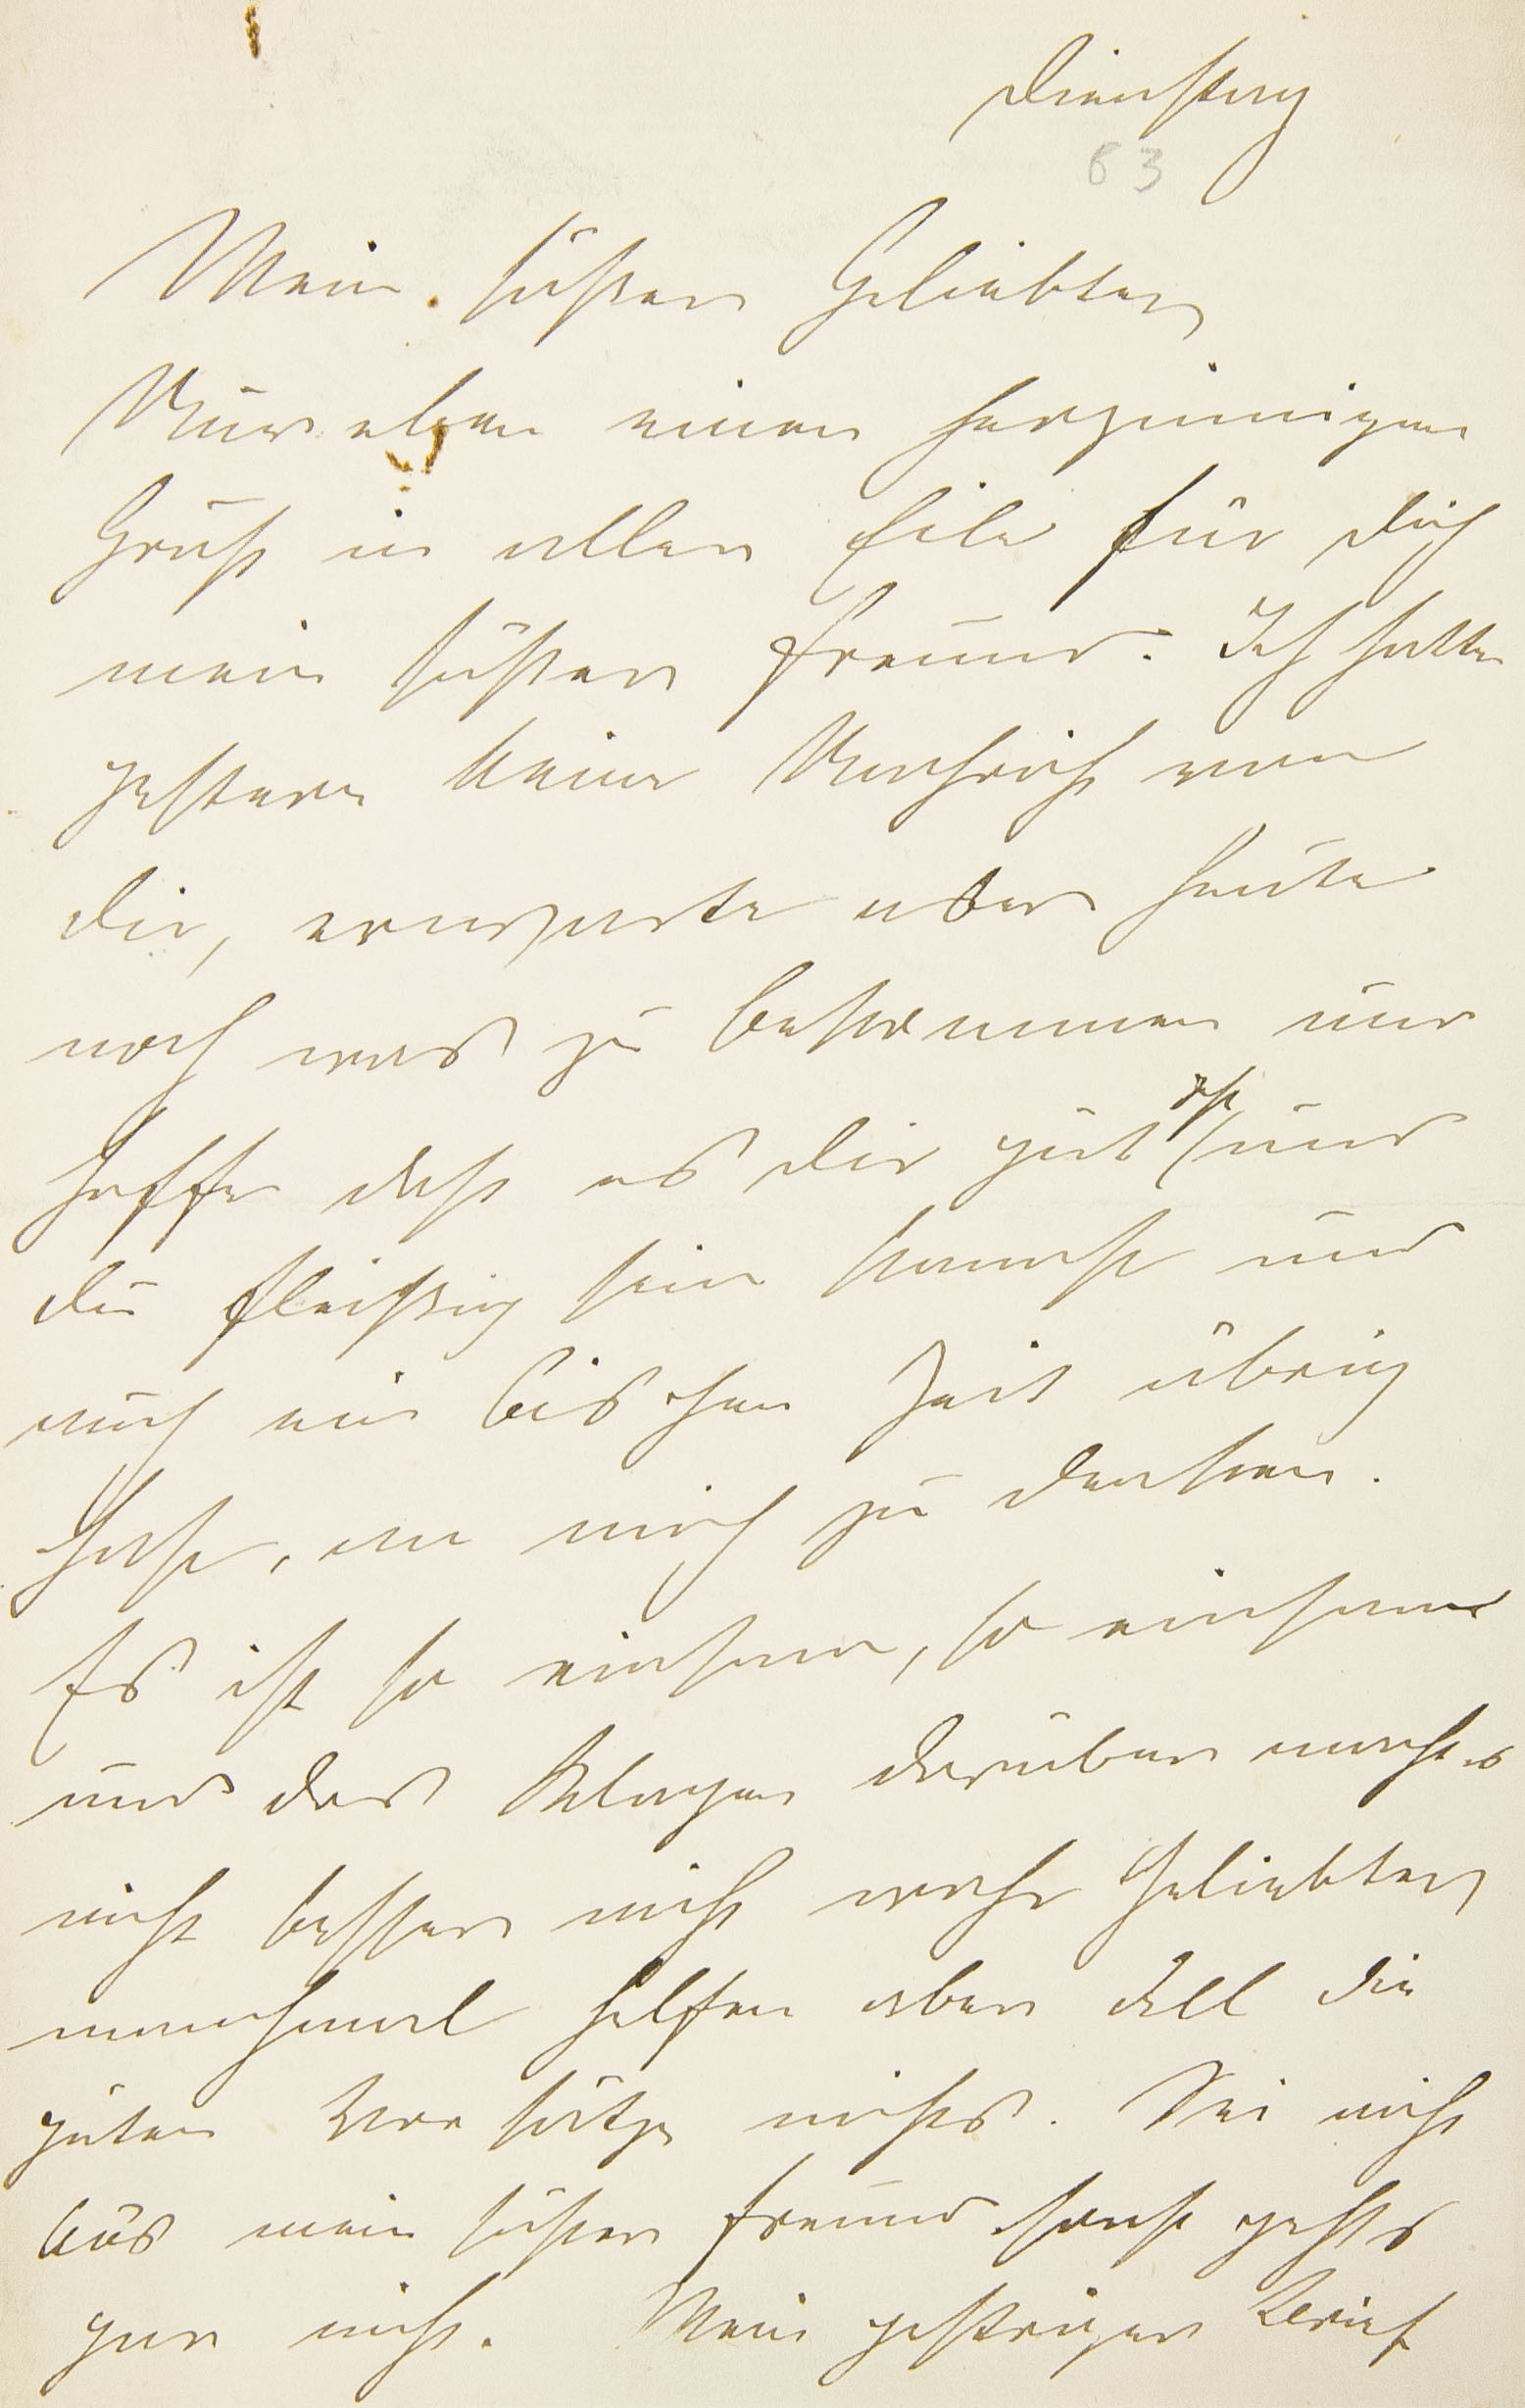 Dienstag
63
Mein süßer Geliebter
Nur eben einen herzinnigen
Gruß in aller Eile für dich
mein süßer Freund. Ich hatte
gestern keine Nachricht von
dir, erwarte aber heute
noch was zu bekommen und
hoffe daß es dir gut geht und
du fleißig sein kannst und
auch ein bischen Zeit übrig
hast, an mich zu denken.
Es ist so einsam, so einsam
und das Klagen darüber machts
nicht besser nicht wahr Geliebter
manchmal helfen aber all die
guten Vorsätze nichts. Sei nicht
bös mein süßer Freund sonst gehts
gar nicht. Mein gestriger Brief